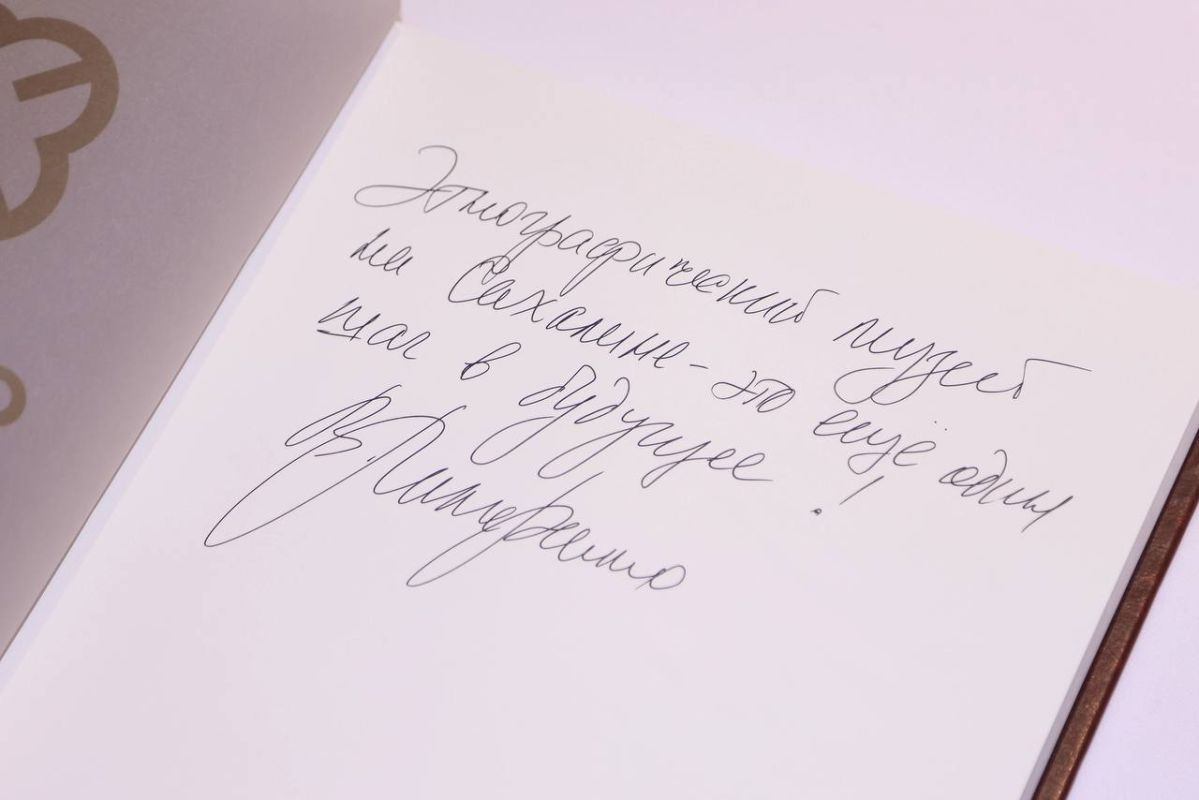 Этнографический музей
на Сахалине - это ещё один
шаг в будущее!
В. Лимаренко